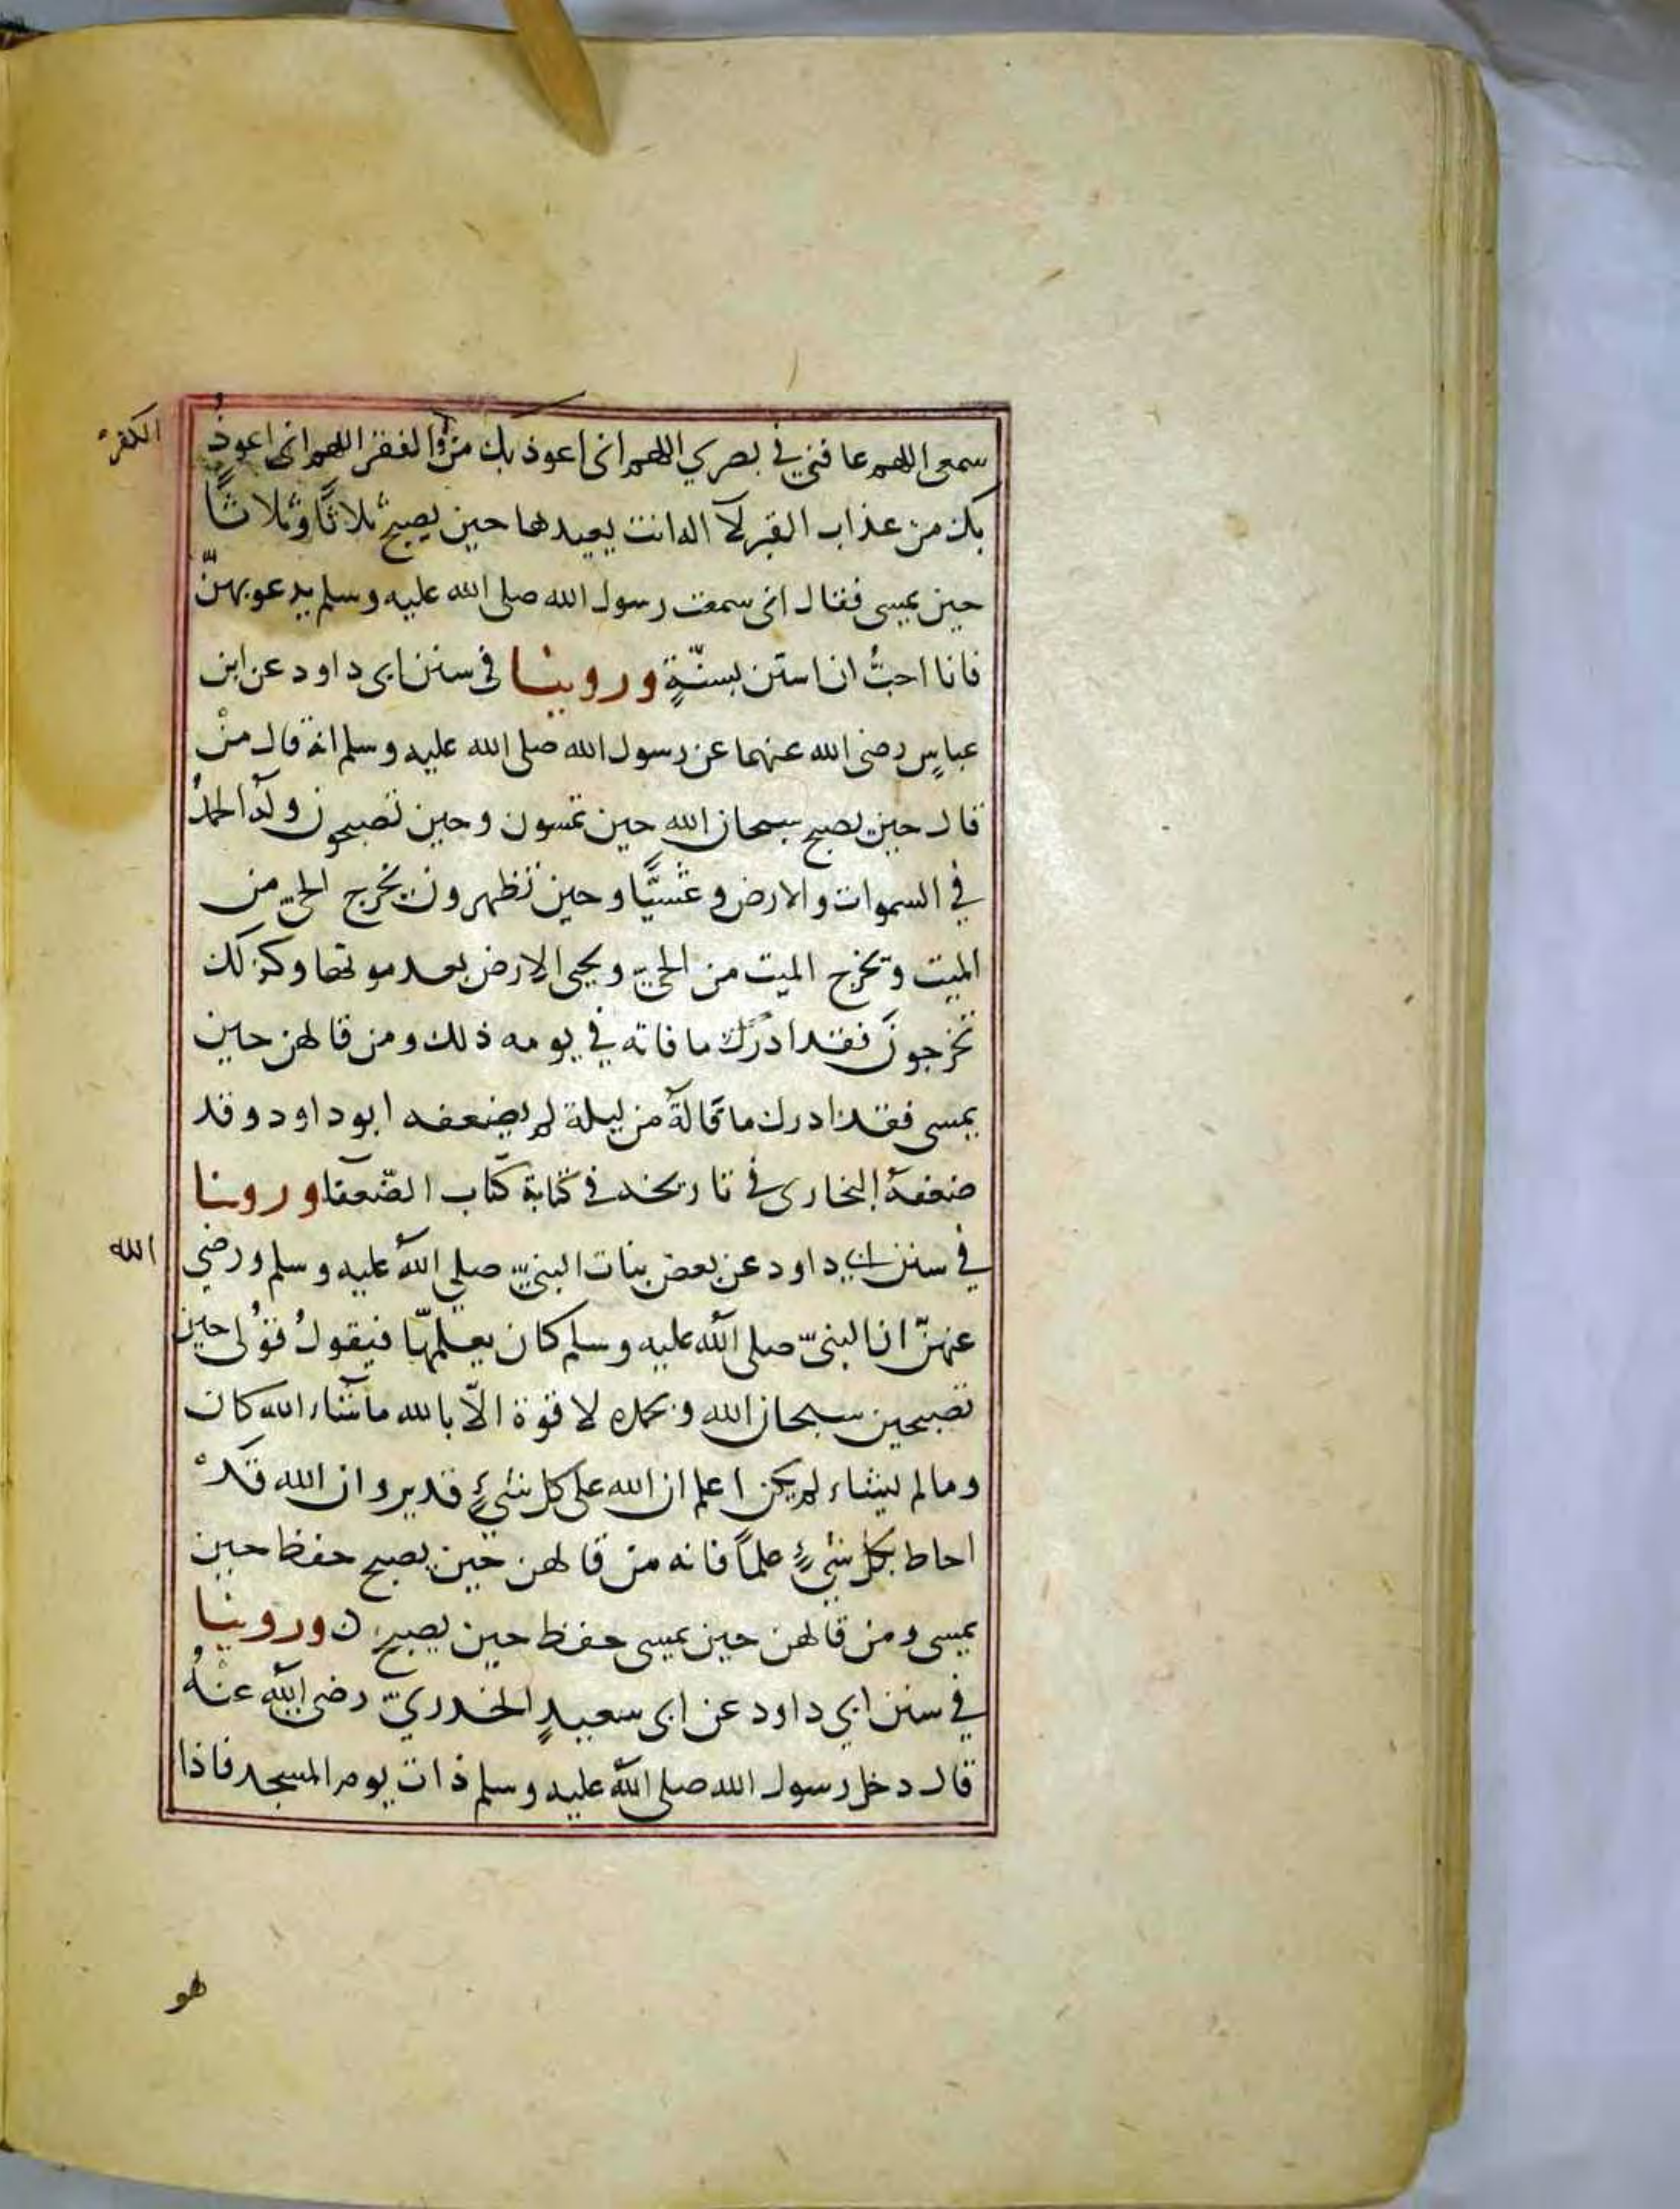 الكفر
سمعى اللهم عافني في بصري اللهم انى اعوذ بك من والفقر اللهم انى اعوذُ
بك من عذاب القبر لآ اله انت يعيدها حين يصبح ثلاثًا وثلاثًا
حين يمسى فقال انى سمعت رسول الله صلى الله عليه وسلم يدعو بهنّ
فانا احبُّ ان استن بسنّةٍ وروينا فى سنن ابى داود عن ابن
عباسٍ رضى الله عنهما عن رسول الله صلى الله عليه وسلم انه قال منْ
قال حين يصبح سبحان الله حين تمسون وحين تصبحون وله الحمدُ
في السموات والارض وعشيًّا وحين تظهرون يخرج الحيّ من
الميت وتخرج الميت من الحيّ ويحيى الارض بعد موتها وكذلك
تخرجونَ فقد ادرك ما فاته في يومه ذلك ومن قالهن حين
يمسى فقد ادرك ما قالهُ من ليلة لم يضعفه ابو داود وقد
ضعفهُ البخارى في تاريخه فى كتابة كتاب الضّعفا وروينا
في سنن ابى داود عن بعض بنات النبيّ صلي الله عليه وسلم ورضي
الله
عنهنّ ان النبىّ صلى الله عليه وسلم كان يعلمهّا فيقولُ قوُلى حين
تصبحين سبحان الله وبحمده لا قوة الّا بالله ما شاء الله كان
وما لم يشاء لم يكن اعلم ان الله على كل شيءٍ قدير وان الله قَدْ
احاط بكل شيءٍ علمًا فانه من قالهن حين يصبح حفظ حين
يمسى ومن قالهن حين يمسى حفظ حين يصبح ن وروينا
في سنن ابي داود عن ابى سعيدٍ الخدريّ رضى الله عنْهُ
قال دخل رسول الله صلى الله عليه وسلم ذات يوم المسجد فاذا
هو